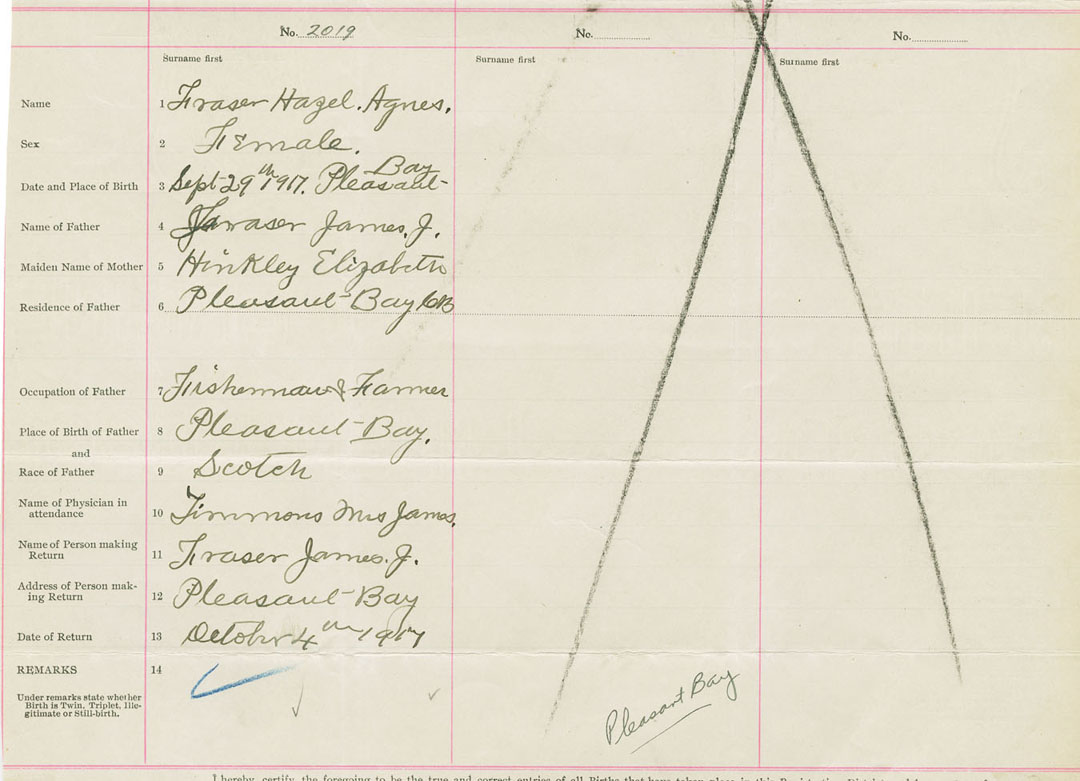 No. 2019 No. No.
Surname first Surname first Surname first
Name 1 Fraser Hazel. Agnes.
Sex 2 Female.
Bay
Date and Place of Birth 3 Sept 29th 1917. Pleasant
Name of Father 4 Fraser James. J.
Maiden Name of Mother 5 Hinkley Elizabeth
Residence of Father 6 Pleasant Bay CB
Occupation of Father 7 Fisherman & Farmer
Place of Birth of Father 8 Pleasant Bay.
and
Race of Father 9 Scotch
Name of Physician in
attendance 10 Timmons Mrs James.
Name of Person making
Return 11 Fraser James. J.
Address of Person mak-
ing Return 12 Pleasant Bay
Date of Return 13 October 4th 1917
REMARKS 14
Under remarks state whether
Birth is Twin, Triplet, Ille-
gitimate or Still-birth.
Pleasant Bay
I hereby certify the foregoing to be the true and correct entries of all Births that have taken place in this Registration District